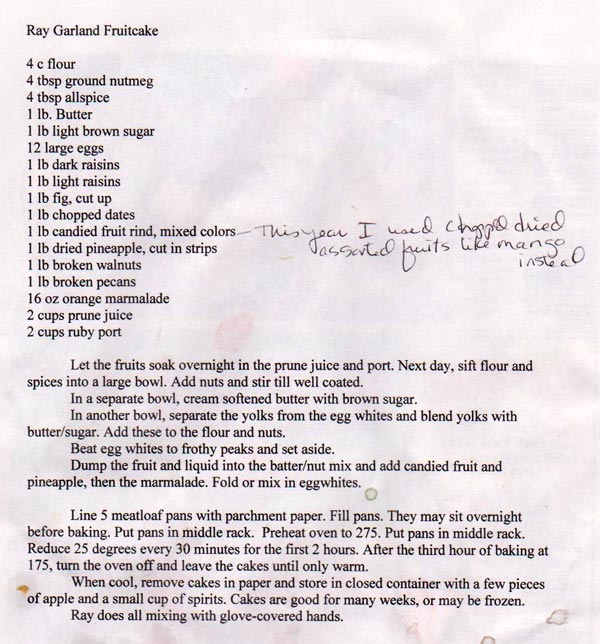 Ray Garland Fruitcake
4 c flour
4 tbsp ground nutmeg
4 tbsp allspice
1 lb. Butter
1 lb light brown sugar
12 large eggs
1 lb dark raisins
1 lb light raisins
1 lb fig, cut up
1 lb chopped dates
1 lb candied fruit rind, mixed colors – This year I used chopped dried
assorted fruits like mango
instead
1 lb dried pineapple, cut in strips
1 lb broken walnuts
1 lb broken pecans
16 oz orange marmalade
2 cups prune juice
2 cups ruby port
Let the fruits soak overnight in the prune juice and port. Next day, sift flour and
spices into a large bowl. Add nuts and stir till well coated.
In a separate bowl, cream softened butter with brown sugar.
In another bowl, separate the yolks from the egg whites and blend yolks with
butter/sugar. Add these to the flour and nuts.
Beat egg whites to frothy peaks and set aside.
Dump the fruit and liquid into the batter/nut mix and add candied fruit and
pineapple, then the marmalade. Fold or mix in eggwhites.
Line 5 meatloaf pans with parchment paper. Fill pans. They may sit overnight
before baking. Put pans in middle rack. Preheat oven to 275. Put pans in middle rack.
Reduce 25 degrees every 30 minutes for the first 2 hours. After the third hour of baking at
175, turn the oven off and leave the cakes until only warm.
When cool, remove cakes in paper and store in closed container with a few pieces
of apple and a small cup of spirits. Cakes are good for many weeks, or may be frozen.
Ray does all mixing with glove-covered hands.